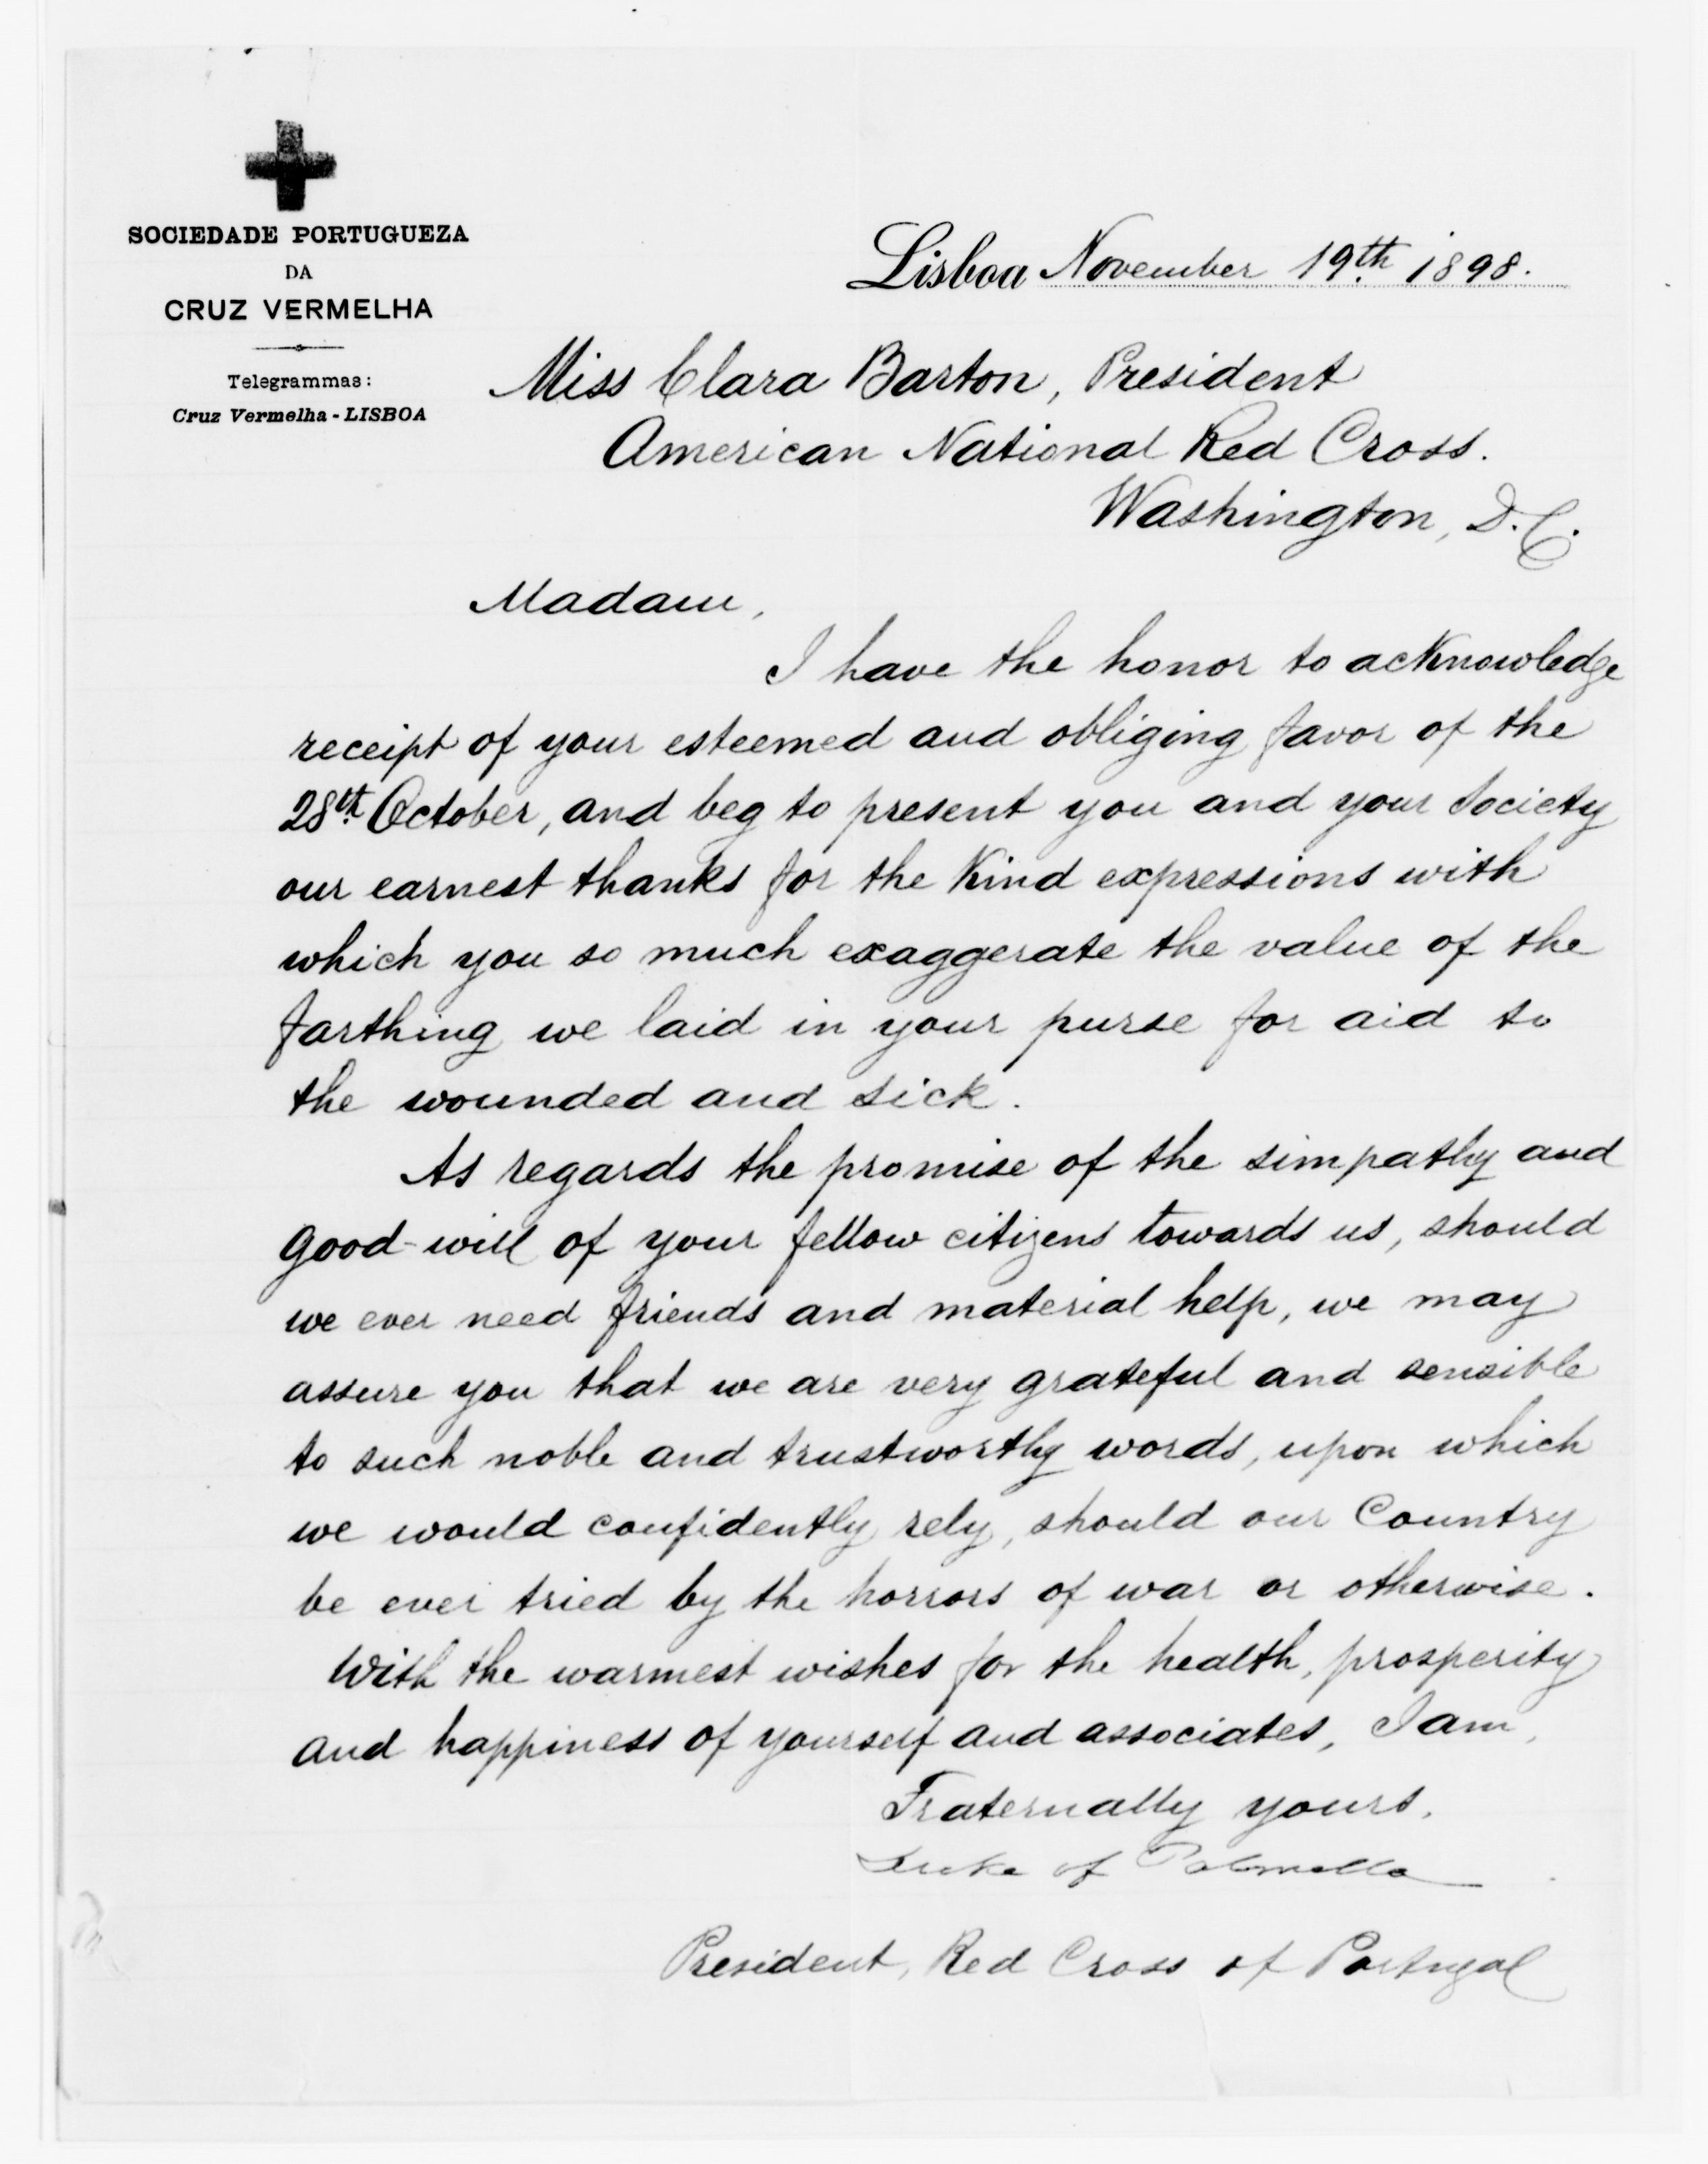 SOCIEDADE PORTUGUEZA
DA
CRUZ VERMELHA
Telegrammas:
Cruz Vermelha - LISBOA
Lisboa November 19th 1898.
Miss Clara Barton, President
American National Red Cross.
Washington, D.C.
Madam,
I have the honor to acKnowledge
receipt of your esteemed and obliging favor of the
28th October, and beg to present you and your Society
our earnest thanks for the Kind expressions with
which you so much exaggerate the value of the
farthing we laid in your purse for aid to
the wounded and sick.
As regards the promise of the simpathy and
good-will of your fellow citizens towards us, should
we ever need friends and material help, we may
assure you that we are very grateful and sensible
to such noble and trustworthy words, upon which
we would confidently rely, should our Country
be ever tried by the horrors of war or otherwise.
With the warmest wishes for the health, prosperity
and happiness of yourself and associates, I am,
Fraternally yours,
Duke of Palmella
President, Red Cross of Portugal